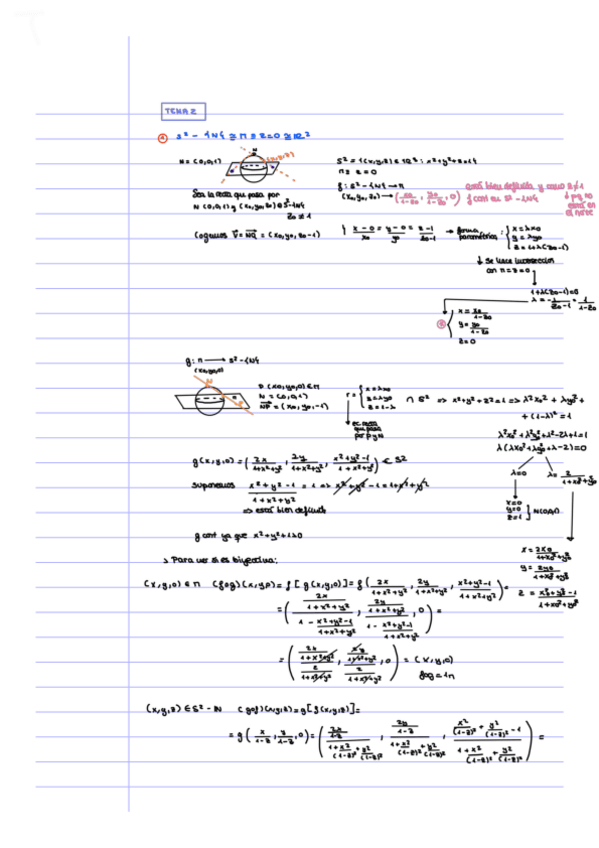 TEMA 2
S² - {N} ≅ π ≡ z=0 ≅ ℝ²
N = (0,0,1)
S² = {(x,y,z) ∈ ℝ³ : x²+y²+z²=1}
π ≡ z = 0
Sea la recta que pasa por
N(0,0,1) y (x₀,y₀,z₀) ∈ S²-{N}
z₀ ≠ 1
f: S² - {N} → π
(x₀,y₀,z₀) → (x₀/(1-z₀), y₀/(1-z₀), 0)
está bien definida y como z₀≠1
f cont en S²-{N}
↓ pq no
está en
el norte
Cogemos v⃗ = NQ⃗ = (x₀,y₀,z₀-1)
} (x-0)/x₀ = (y-0)/y₀ = (z-1)/(z₀-1) → forma paramétrica: { x = λx₀
y = λy₀
z = 1+λ(z₀-1)
↓ se hace intersección
con π ≡ z=0
1+λ(z₀-1)=0
λ = -1/(z₀-1) = 1/(1-z₀)
{ x = x₀/(1-z₀)
y = y₀/(1-z₀)
z=0
g: π → S² - {N}
(x₀,y₀,0)
P(x₀,y₀,0) ∈ π
N = (0,0,1)
NP⃗ = (x₀,y₀,-1)
r ≡ { x = λx₀
y = λy₀
z = 1-λ
∩ S² ⇒ x²+y²+z²=1 ⇒ λ²x₀² + λy₀² +
+ (1-λ)² = 1
ec. recta
que pasa
por P y N
λ²x₀²+λ²y₀²+λ²-2λ+1=1
λ(λx₀²+λy₀²+λ-2)=0
λ=0
λ = 2/(1+x₀²+y₀²)
x=0
y=0
z=1 } N(0,0,1)
g(x,y,0) = (2x/(1+x²+y²), 2y/(1+x²+y²), (x²+y²-1)/(1+x²+y²)) ∈ S²
suponemos (x²+y²-1)/(1+x²+y²) = 1 ⇒ x²+y²-1 = 1+x²+y²
⇒ está bien definida
g cont ya que x²+y²+1>0
x = 2x₀/(1+x₀²+y₀²)
y = 2y₀/(1+x₀²+y₀²)
z = (x₀²+y₀²-1)/(1+x₀²+y₀²)
> Para ver si es biyectiva:
(x,y,0) ∈ π (f∘g)(x,y,0) = f[g(x,y,0)] = f(2x/(1+x²+y²), 2y/(1+x²+y²), (x²+y²-1)/(1+x²+y²)) =
= ((2x/(1+x²+y²))/(1 - (x²+y²-1)/(1+x²+y²)), (2y/(1+x²+y²))/(1 - (x²+y²-1)/(1+x²+y²)), 0) =
= ((2x/(1+x²+y²))/(2/(1+x²+y²)), (2y/(1+x²+y²))/(2/(1+x²+y²)), 0) = (x,y,0)
f∘g = 1π
(x,y,z) ∈ S² - N (g∘f)(x,y,z) = g[f(x,y,z)] =
= g(x/(1-z), y/(1-z), 0) = ((2x/(1-z))/(1+x²/(1-z)²+y²/(1-z)²), (2y/(1-z))/(1+x²/(1-z)²+y²/(1-z)²), (x²/(1-z)²+y²/(1-z)²-1)/(1+x²/(1-z)²+y²/(1-z)²)) =